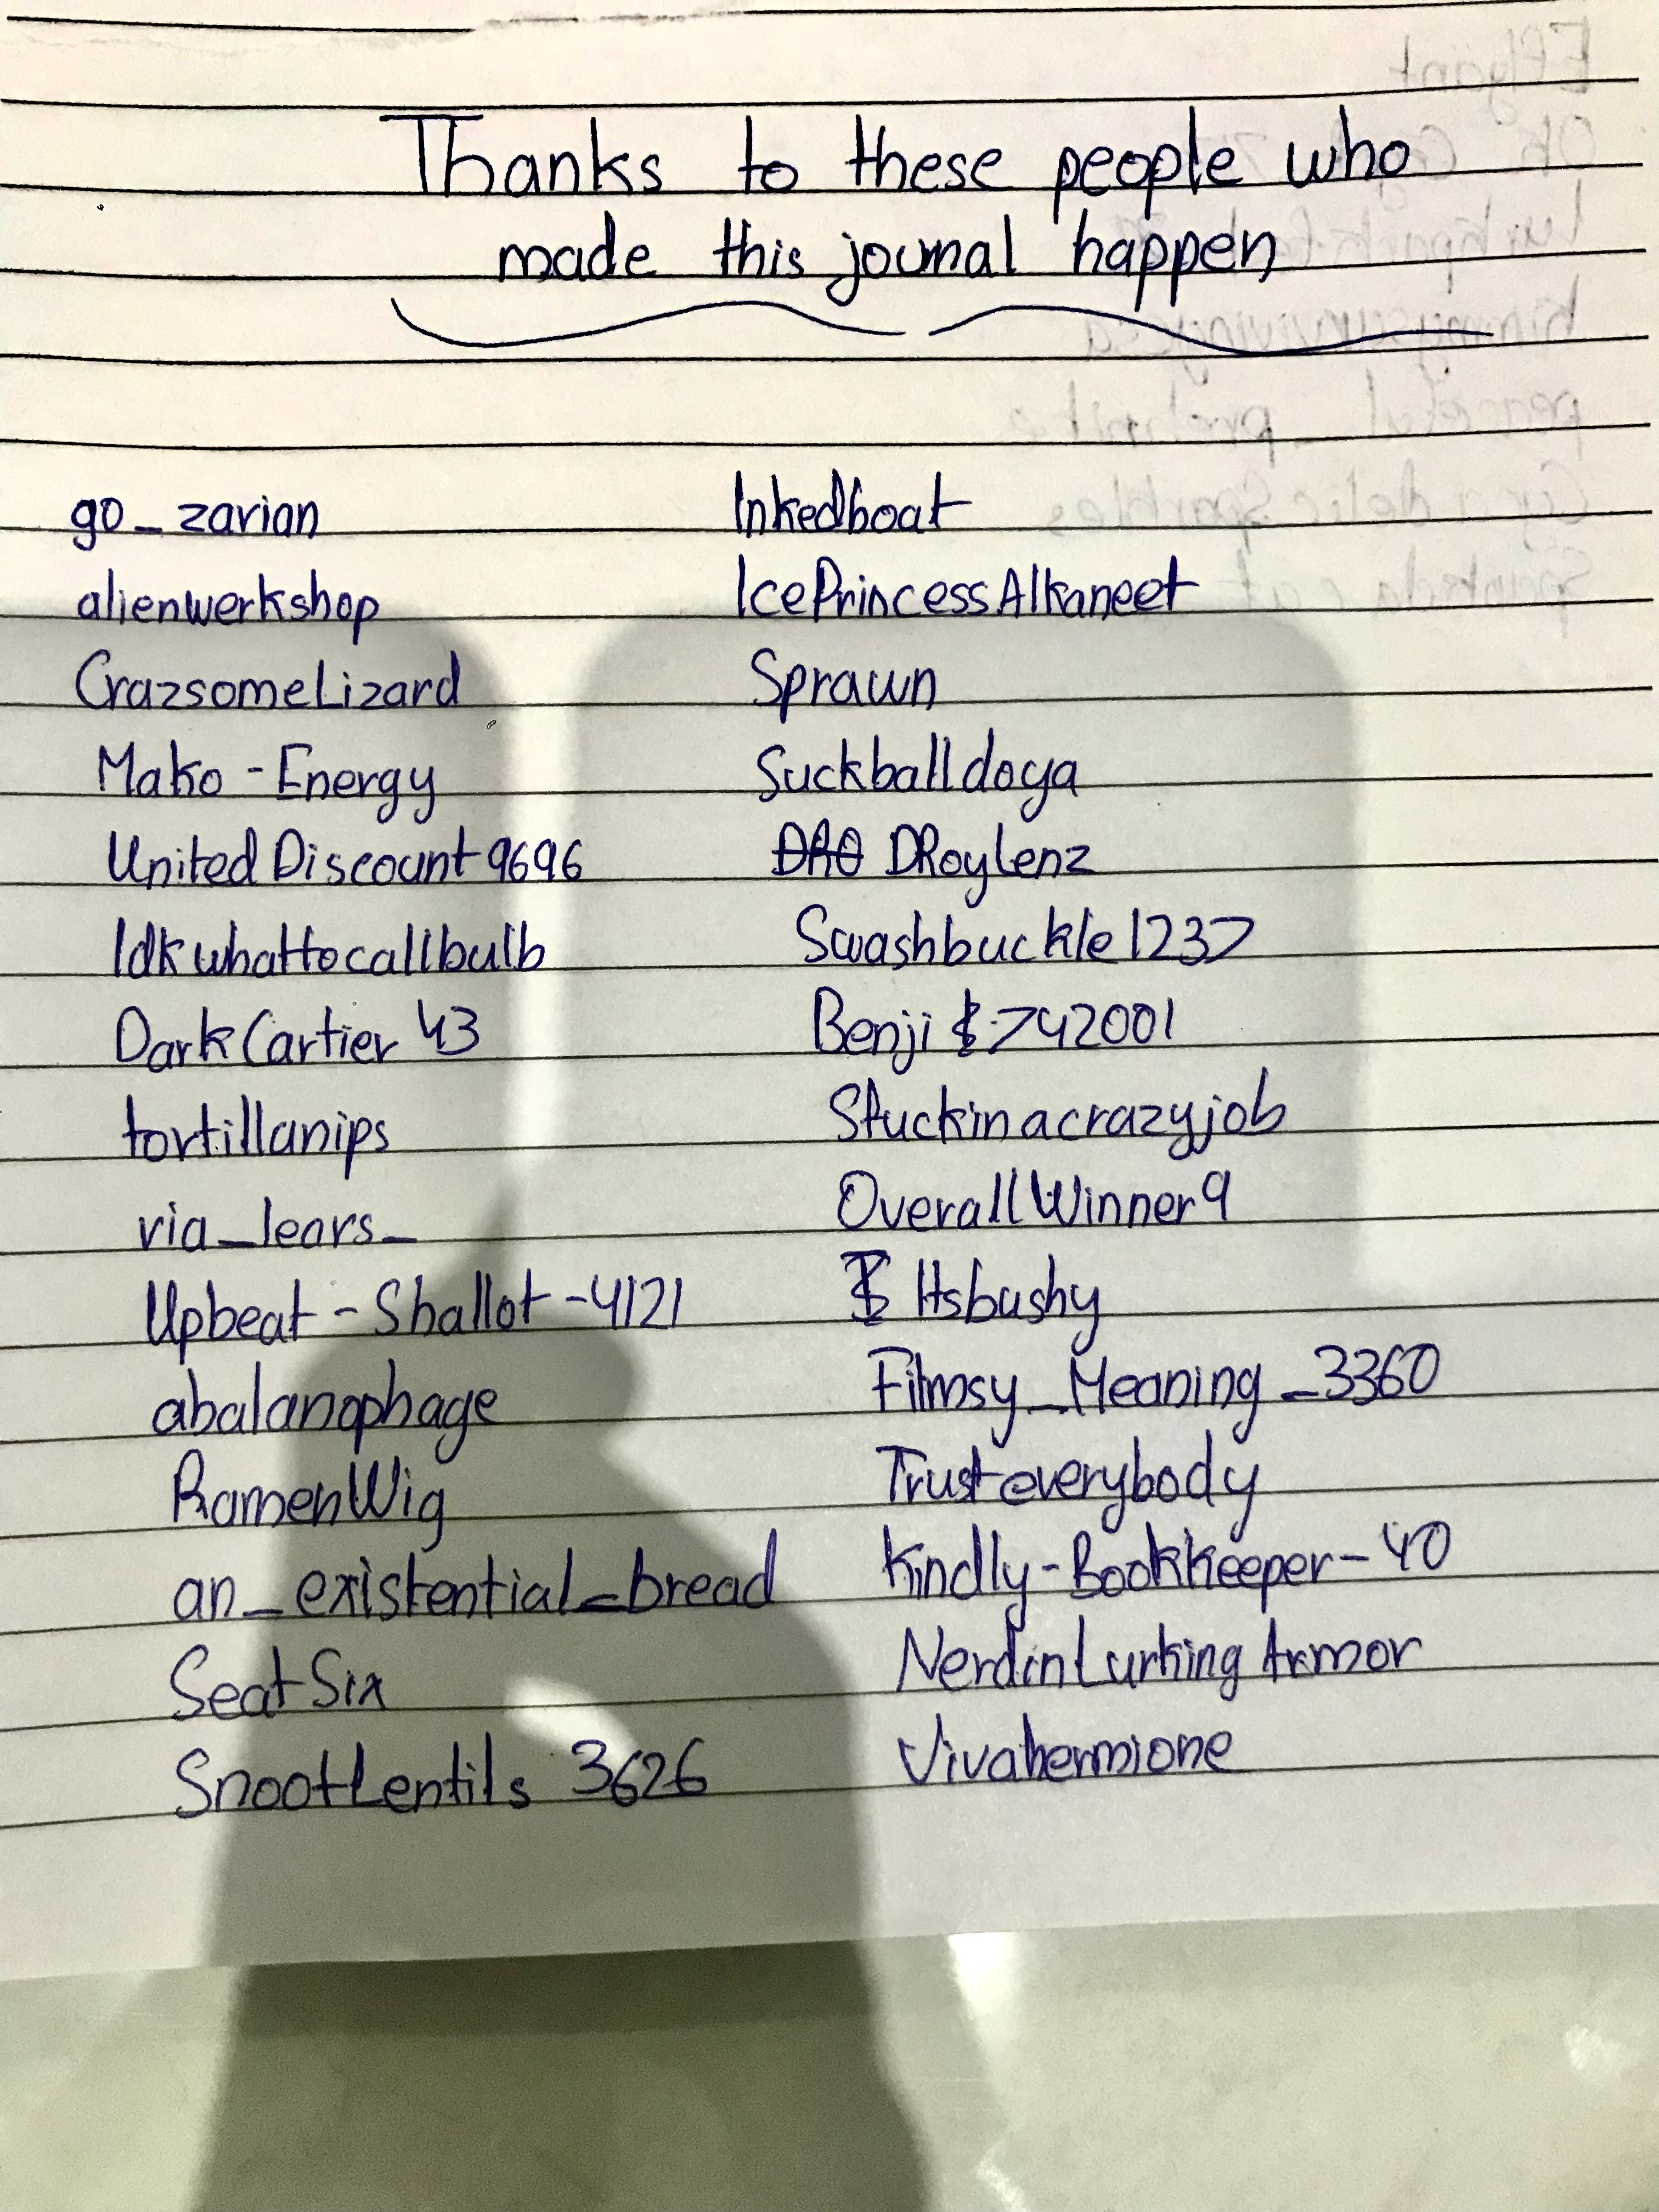 Thanks to these people who
made this journal happen
go_zarian
alienwerkshop
CrazsomeLizard
Mako-Energy
UnitedDiscount9696
Idkwhattocallbulb
DarkCartier43
tortillanips
via_lears_
Upbeat-Shallot-4121
abalanophage
RamenWig
an_existential_bread
SeatSix
SnootLentils 3626
Inkedboat
IcePrincessAlkaneet
Sprawn
Suckballdoya
DRoyLenz
Swashbuckle1237
Benji 742001
Stuckinacrazyjob
OverallWinner9
Itsbushy
Filmsy_Meaning_3360
Trusteverybody
Kindly-Bookkeeper-40
NerdinLurkingArmor
Vivahermione